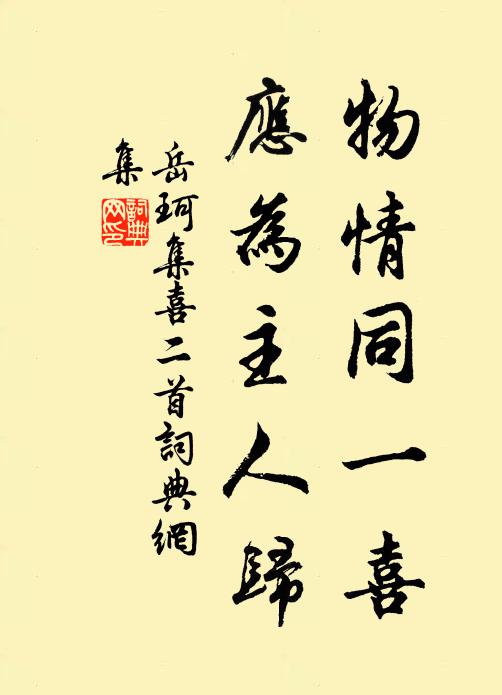 物情同一喜
應為主人歸
岳珂集喜二首詞典網
集
詞典
网印